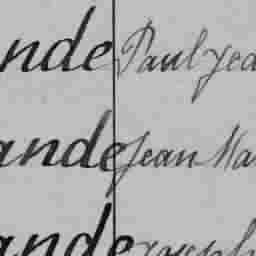 nde Paul Jea
ande Jean Ma
ande Joseph